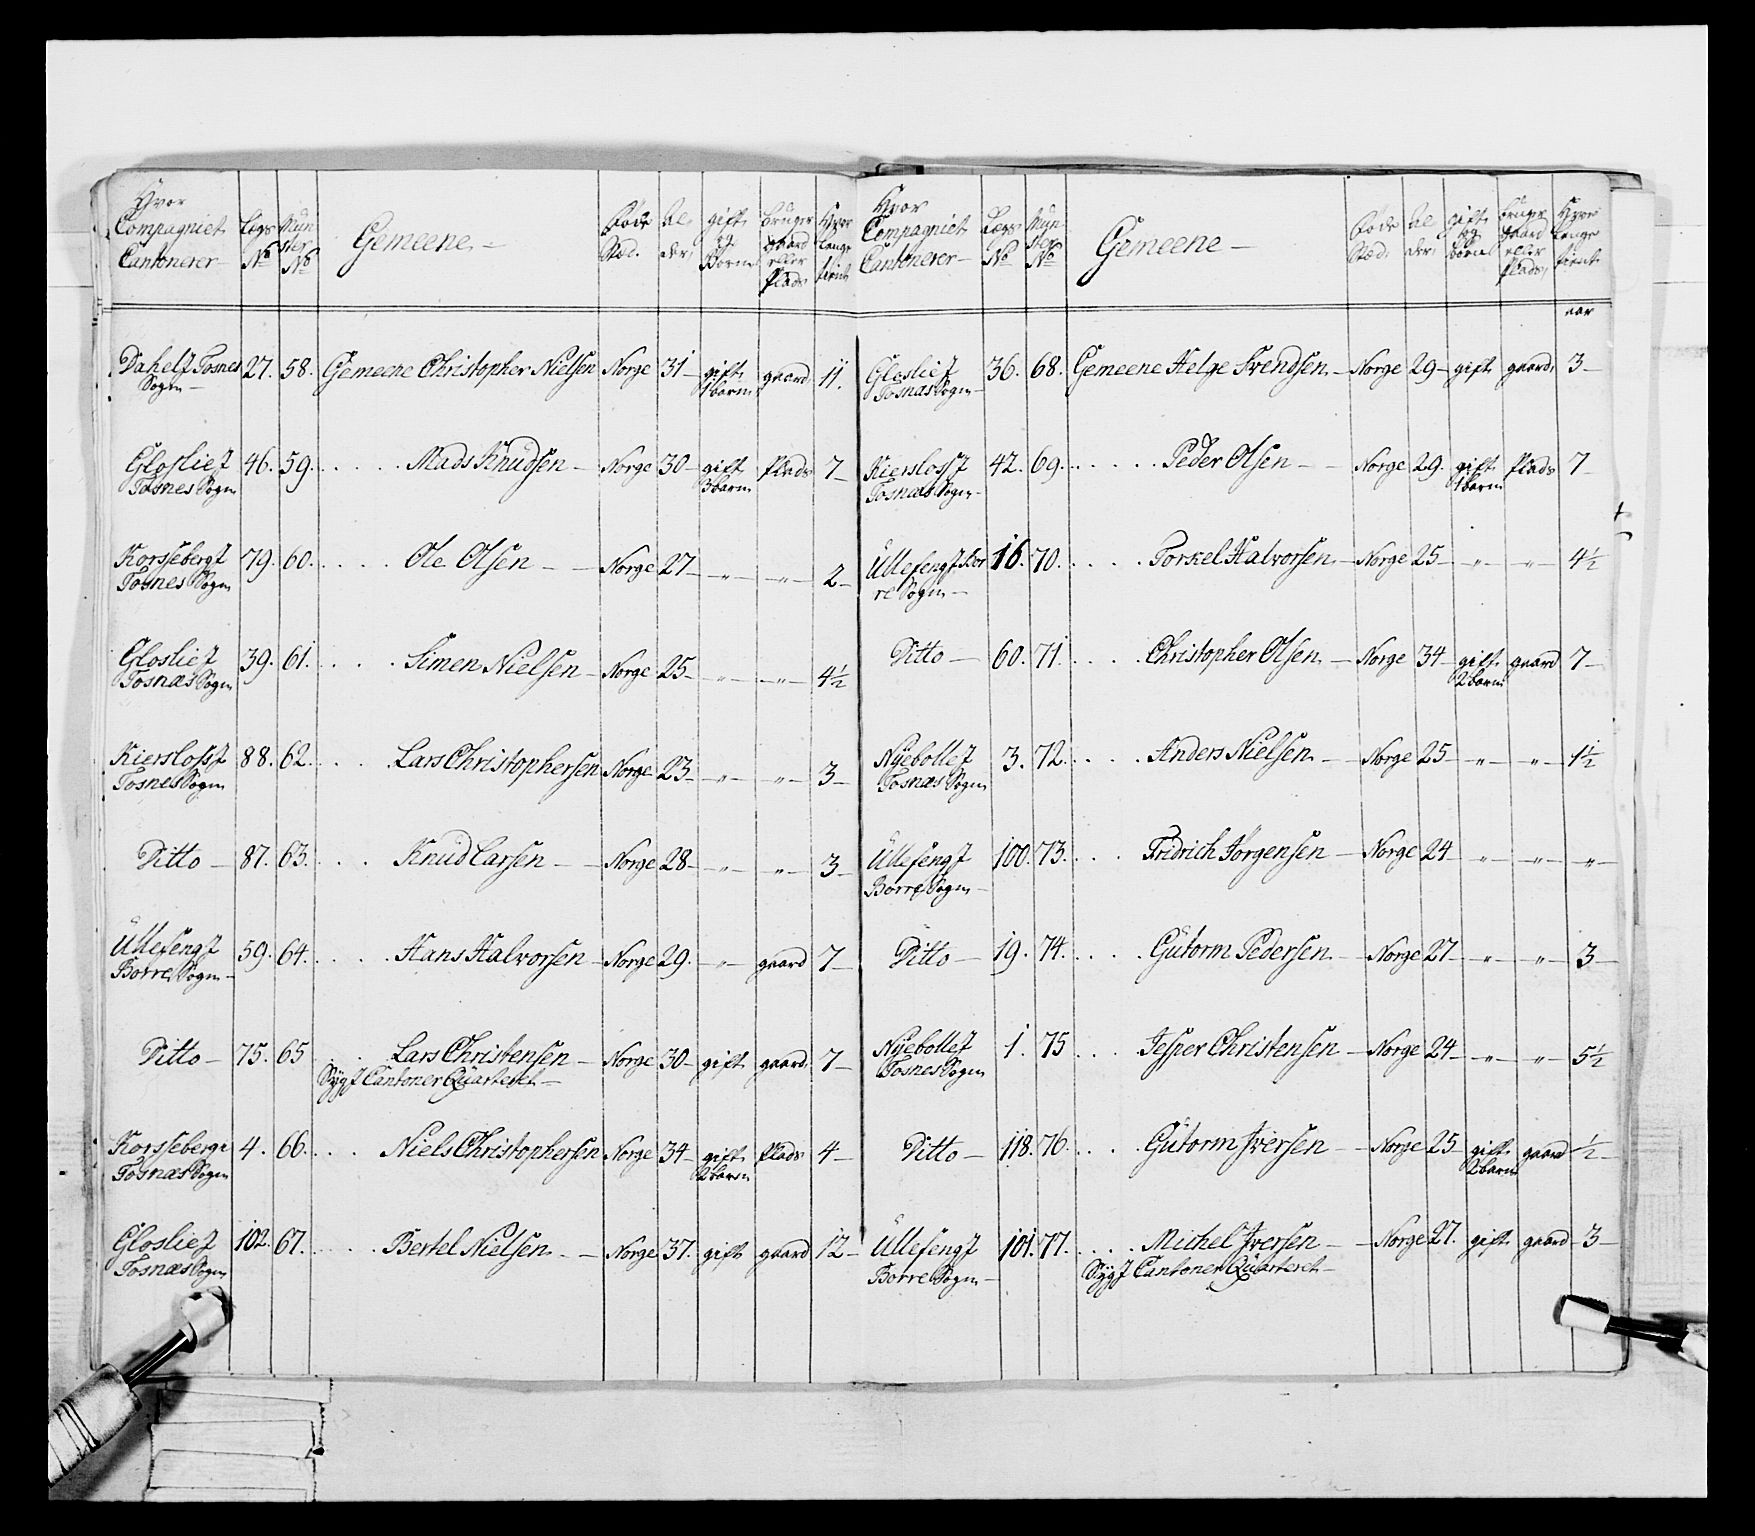 Hvor
Compagniet
Cantonerer
Legs
No
Mün
ster
No
Gemeene
Føde
Stæd.
Al-
der,
gift
og
Børn
bruger
gaard
eller
plads
Hvor
lange
tient
Dahelf Fosnes 27. 58. Gemeene Christopher Nielsen Norge 31 gift gaard 11.
Sogn 1 barn
Gloslief 46. 59. Mads Knudsen Norge 30 gift plads 7
Fosnes Sogn 3 barn
Korssebergf 79. 60. Ole Olsen Norge 27 " " 2
Fosnes Sogn
Gloslief 39. 61. Simen Nielsen Norge 25 " " 4½
Fosnæs Sogn
Kierslossf 88. 62. Lars Christophersen Norge 23 " " 3
Fosnes Sogn
Ditto 87. 63. Knud Larsen Norge 28 " " 3
Ullesengf 59. 64. Hans Halvorsen Norge 29. " gaard 7
Borre Sogn
Ditto 75. 65 Lars Christensen Norge 30 gift gaard 7
Sygf Cantoner Qvarteret
Korsseberge 4. 66. Niels Christophersen Norge 34 gift plads 4
Fosnæs Sogn 2 barn
Gloslief 102. 67. Bertel Nielsen Norge 37. gift gaard 12
Fosnæs Sogn
Hvor
Compagniet
Cantonerer
Lægs
No
Mün
ster
No
Gemeene
Føde
Stæd.
Al-
der,
gift
og
børn
bruger
gaard
eller
plads,
Hvor
lenge
tient
aar
Gloslief 36. 68. Gemeene Helge Svendsen Norge 29 gift gaard, 3
Fosnæs Sogn
Kierslossf 42. 69. Peder Olsen Norge 29. gift plads 7
Fosnæs Sogn 1 barn
Ullesengf Bor 16. 70. Torkel Halvorsen Norge 25 " " 4½
re Sogn
Ditto 60. 71. Christopher Olsen Norge 34 gift gaard 7
2 barn
Nÿebollef 3. 72. Anders Nielsen Norge 25 " " 1½
Fosnæs Sogn
Ullesengf 100. 73. Fridrich Jorgensen Norge 24 " " "
Borre Sogn
Ditto 19. 74. Gutorm Pedersen Norge 27 " " 3
Nÿebollef 1. 75 Jesper Christensen Norge 24 " " 5½
Fosnes Sogn
Ditto 118. 76. Gutorm Iversen Norge 25 gift gaard ½
2 barn
Ullesengf 101. 77. Michel Iversen Norge 27. gift gaard 3
Borre Sogn Sygf Cantoner Qvarteret